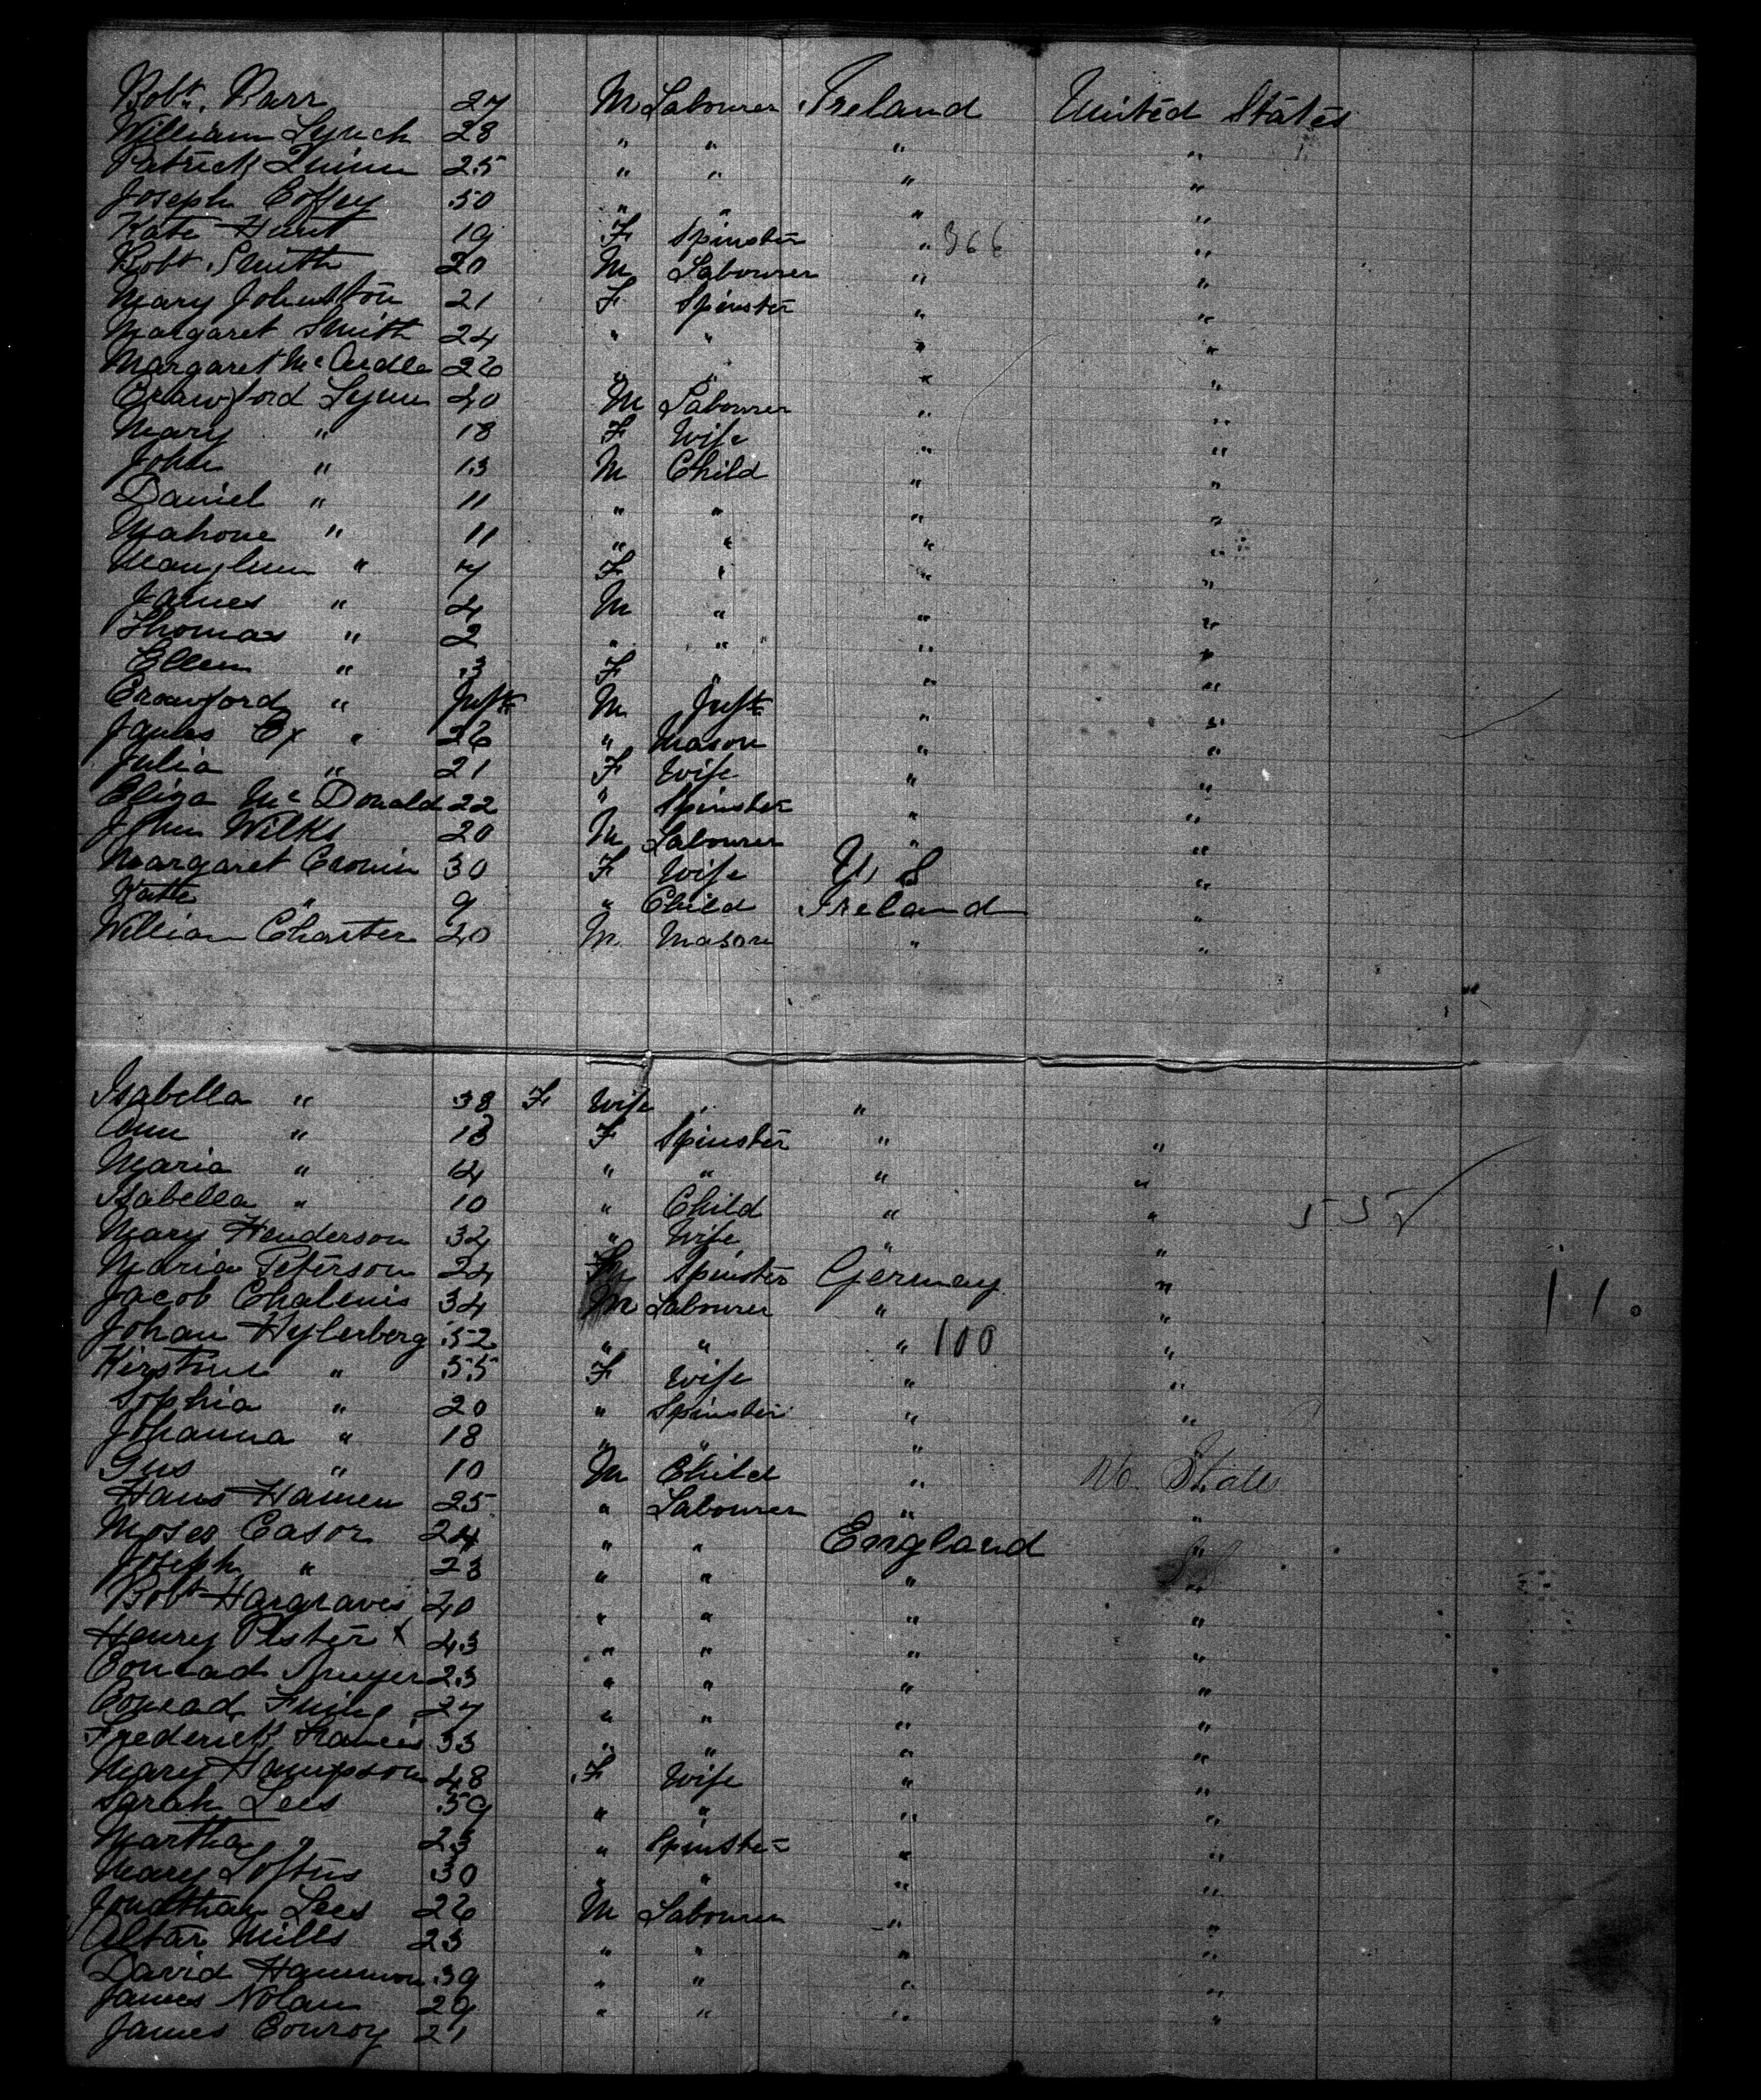 Robt. Barr 27 M Labourer Ireland United States
William Lynch 28 " " " "
Patrick Quinn 25 " " " "
Joseph Coffey 50 " " " "
Kate Hunt 19 F Spinster " 366 "
Robt. Smith 20 M Labourer " "
Mary Johnston 21 F Spinster " "
Margaret Smith 24 " " " "
Margaret McArdle 26 " " " "
Crawford Lynn 40 M Labourer " "
Mary " 18 F Wife " "
John " 13 M Child " "
Daniel " 11 " " " "
" 11 " " " "
" 7 F " " "
James " 4 M " " "
Thomas " 2 " " " "
Ellen " 3 F " " "
Crawford " Inft M Inft " "
James " 26 " Mason " "
Julia " 21 F Wife " "
Eliza McDonald 22 " Spinster " "
John Wilks 20 M Labourer " "
Margaret Cronin 30 F Wife U, S "
Kate " 9 " Child Ireland "
William Charter 20 M Mason " "
Isabella " 38 F Wife " "
Ann " 18 F Spinster " "
Maria " 14 " " " "
Isabella " 10 " Child " " 555
Mary Henderson 32 " Wife " "
Maria Peterson 24 Spinster Germany "
Jacob 34 M Labourer " " 110
Johan Hylerberg 52 " " " 100 "
" 55 F Wife " "
Sophia " 20 " Spinster " "
Johanna " 18 " " "
Gus " 10 M Child "
Hans Hansen 25 " Labourer " "
Moses Casor 24 " " England "
Joseph " 23 " " " "
Robt Hargraves 40 " " " "
Henry x 43 " " " "
Conrad 23 " " " "
Conrad 27 " " " "
Frederick Francis 33 " " " "
Mary Hampson 48 F Wife " "
Sarah Lees 59 " " " "
Martha " 23 " Spinster " "
Mary Loftus 30 " " " "
Jonathan Lees 26 M Labourer " "
Mills 23 " " " "
David 39 " " " "
James Nolan 29 " " " "
James Conroy 21